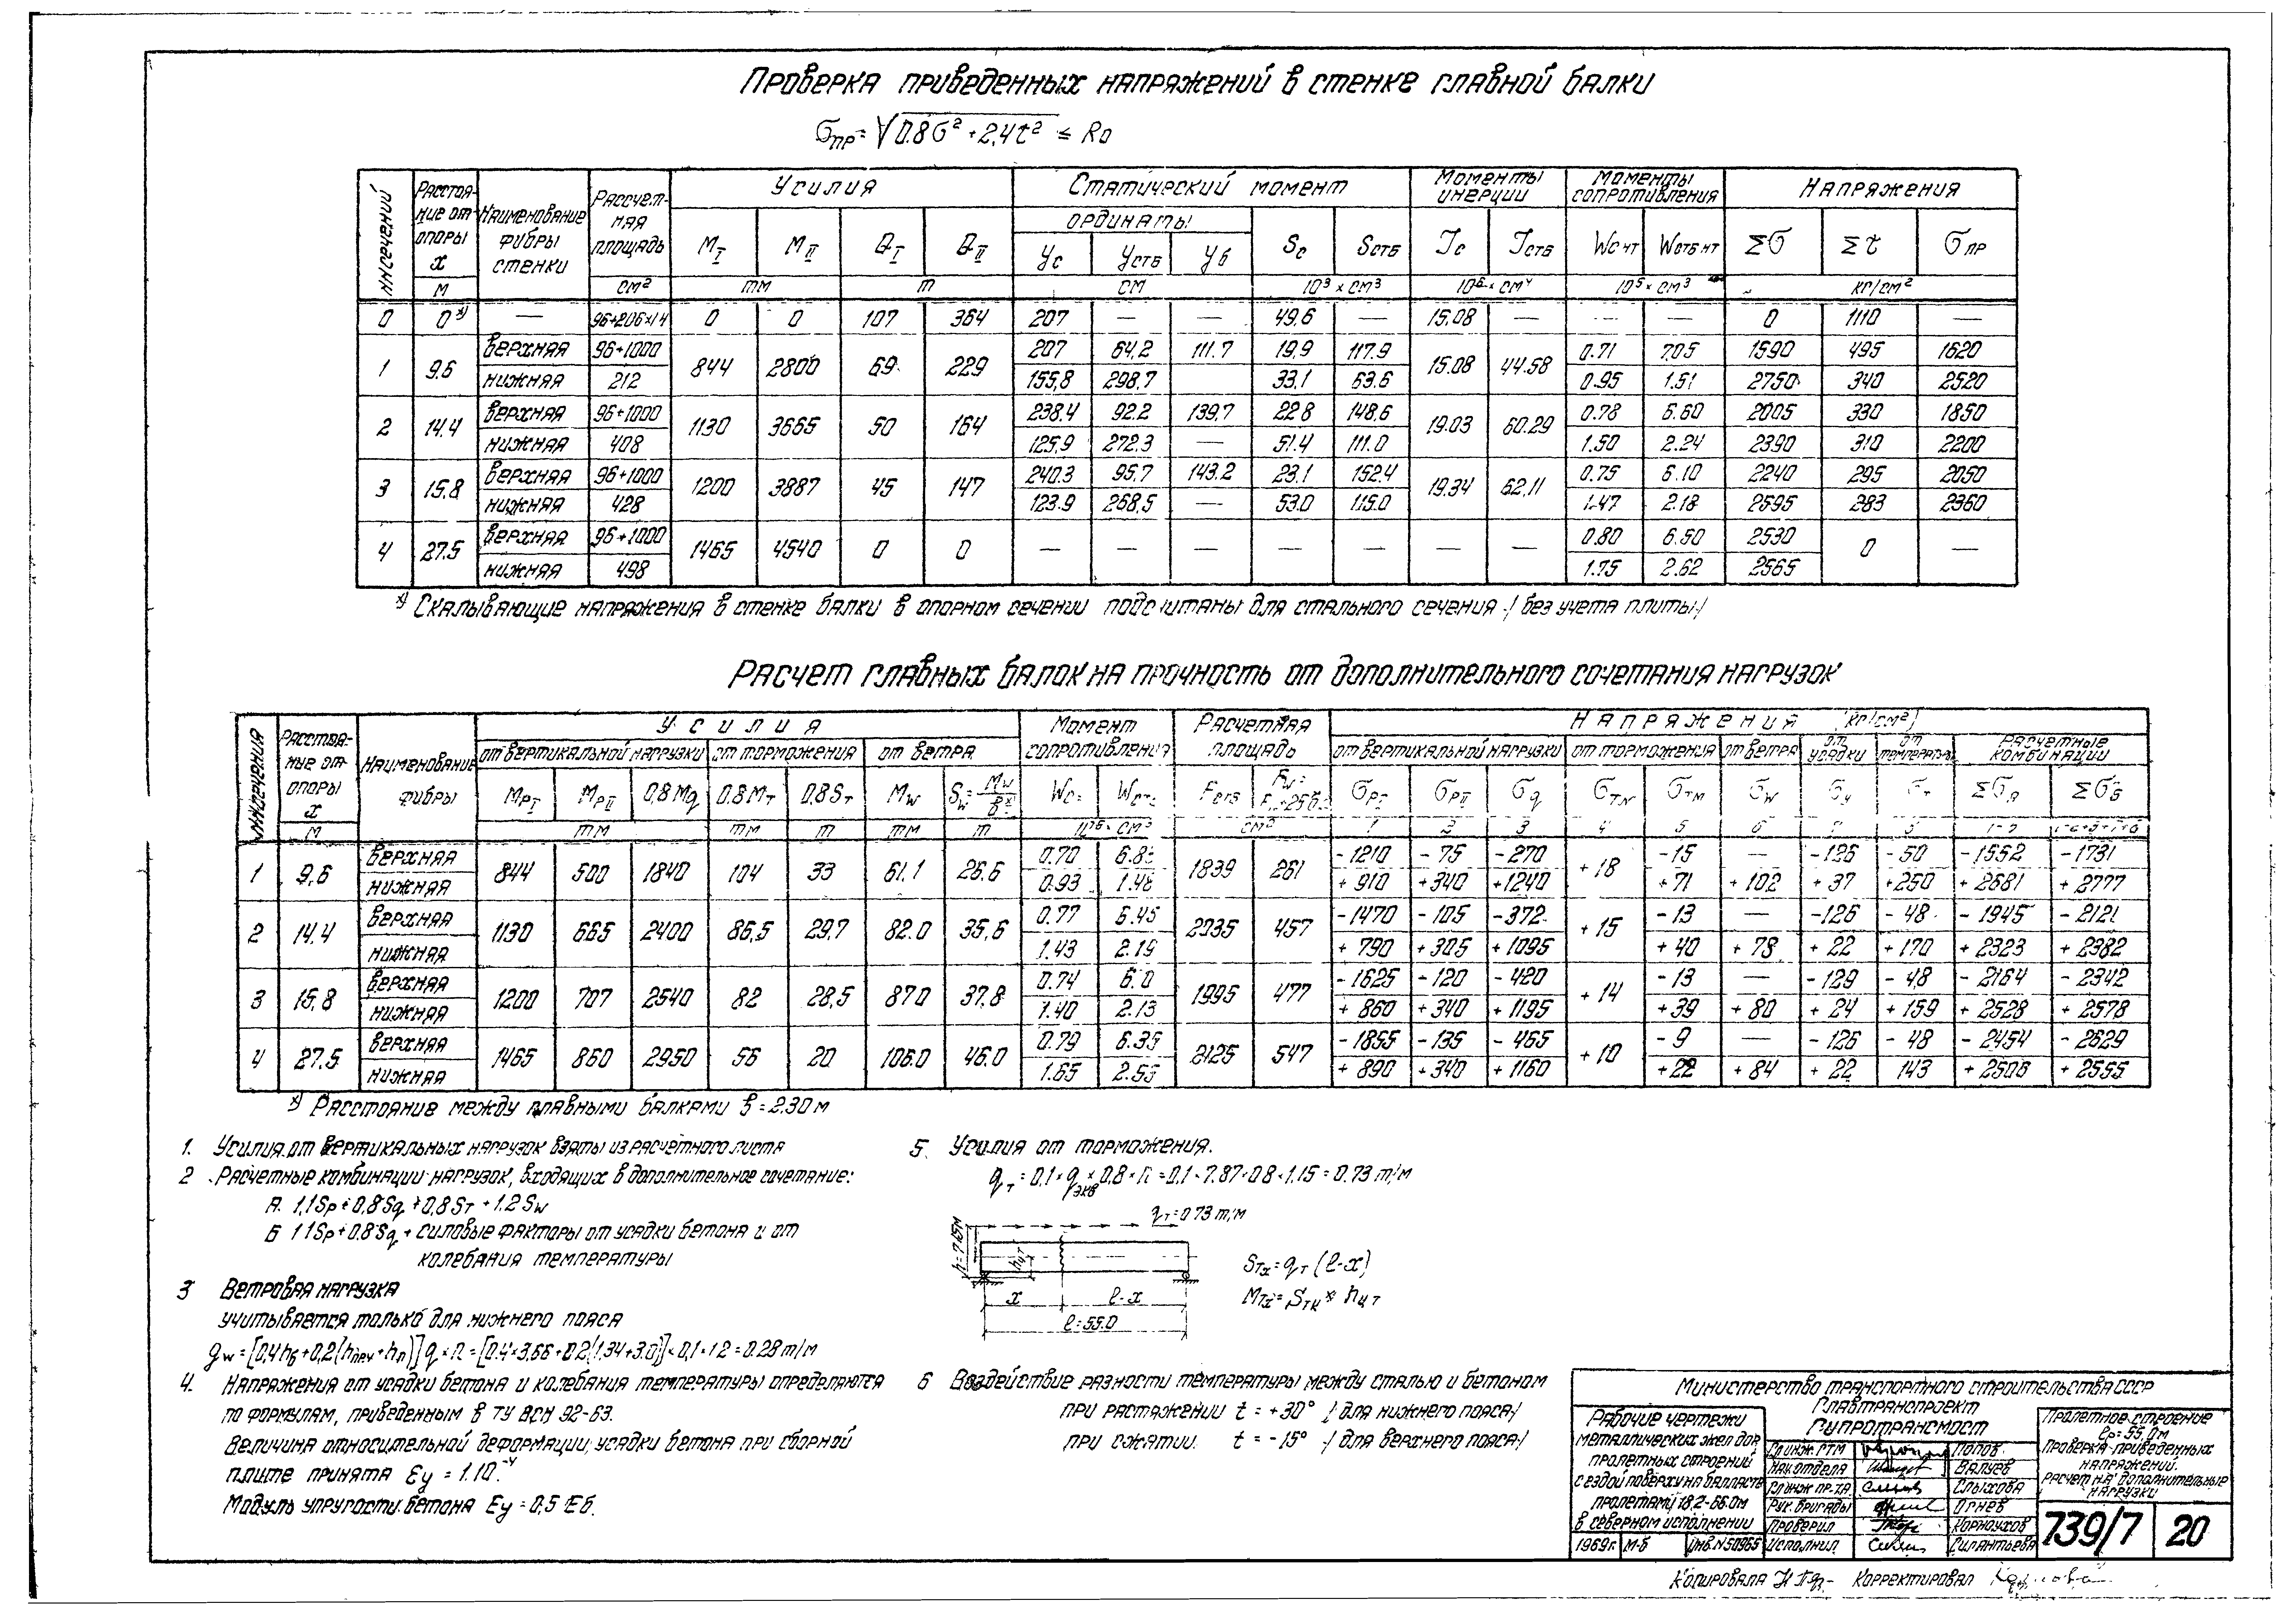 Проверка приведенных напряжений в стенке главной балки
σпр = √0.8σ² + 2,4τ² ≤ R0
№№ сечений | Расстояние от опоры x | Наименование фибры стенки | Рассчетная площадь | Усилия | Статический момент | Моменты инерции | Моменты сопротивления | Напряжения
ординаты
MI | MII | QI | QII | yс | yстб | yб | Sс | Sстб | Jс | Jстб | Wс нт | Wстб нт | Σσ | Στ | σпр
м | см² | тм | т | см | 10³ × см³ | 10⁶ × см⁴ | 10⁵ × см³ | кг/см²
0 | 0 ˣ⁾ | — | 96+206×1.4 | 0 | 0 | 107 | 364 | 207 | — | — | 49.6 | — | 15.08 | — | — | — | 0 | 1110 | —
1 | 9.6 | верхняя | 96+1000 | 844 | 2800 | 69 | 229 | 207 | 64,2 | 111.7 | 19,9 | 117.9 | 15.08 | 44.58 | 0.71 | 7.05 | 1590 | 495 | 1620
нижняя | 212 | 155,8 | 298,7 | 33,1 | 63.6 | 0.95 | 1.51 | 2750 | 340 | 2520
2 | 14.4 | верхняя | 96+1000 | 1130 | 3665 | 50 | 164 | 238,4 | 92.2 | 139,7 | 22.8 | 148,6 | 19.03 | 60.29 | 0.78 | 6.60 | 2005 | 330 | 1850
нижняя | 408 | 125,9 | 272,3 | — | 51.4 | 111.0 | 1.50 | 2.24 | 2390 | 310 | 2200
3 | 15.8 | верхняя | 96+1000 | 1200 | 3887 | 45 | 147 | 240.3 | 95,7 | 143.2 | 23,1 | 152.4 | 19.34 | 62,11 | 0.75 | 6.10 | 2240 | 295 | 2050
нижняя | 428 | 123.9 | 268,5 | — | 53.0 | 115.0 | 1.47 | 2.18 | 2595 | 283 | 2360
4 | 27.5 | верхняя | 96+1000 | 1465 | 4540 | 0 | 0 | — | — | — | — | — | — | — | 0.80 | 6.50 | 2530 | 0 | —
нижняя | 498 | 1.75 | 2.62 | 2565
ˣ⁾ Скалывающие напряжения в стенке балки в опорном сечении подсчитаны для стального сечения /без учета плиты/
Расчет главных балок на прочность от дополнительного сочетания нагрузок
№№ сечения | Расстояние от опоры x | Наименование фибры | Усилия | Момент сопротивления | Расчетная площадь | Напряжения (кг/см²)
от вертикальной нагрузки | от торможения | от ветра | от вертикальной нагрузки | от торможения | от ветра | от усадки | от температуры | Расчетные комбинации
MPI | MPII | 0,8Mq | 0.8Mт | 0,8Sт | Mw | Sw = Mw/Bˣ | Fстб | σPI | σPII | σq | σтN | σтм | σw | σу | σт | Σσа | Σσб
м | тм | тм | т | тм | т | см³ | см² | 1 | 2 | 3 | 4 | 5 | 6
1 | 9,6 | верхняя | 844 | 500 | 1840 | 104 | 33 | 61.1 | 26.6 | 0.70 | 1839 | 261 | -1210 | -75 | -270 | +18 | -15 | — | -126 | -50 | -1552 | -1731
нижняя | 0.93 | 1.48 | +910 | +340 | +1240 | +71 | +102 | +37 | +250 | +2681 | +2777
2 | 14.4 | верхняя | 1130 | 665 | 2400 | 86,5 | 29,7 | 82.0 | 35,6 | 0.77 | 6.45 | 2035 | 457 | -1470 | -105 | -372 | +15 | -13 | — | -126 | -48 | -1945 | -2121
нижняя | 1.43 | 2.19 | +790 | +305 | +1095 | +40 | +78 | +22 | +170 | +2323 | +2382
3 | 15.8 | верхняя | 1200 | 707 | 2540 | 82 | 28,5 | 87.0 | 37.8 | 0.74 | 6.0 | 1995 | 477 | -1625 | -120 | -420 | +14 | -13 | — | -129 | -48 | -2164 | -2342
нижняя | 1.40 | 2.13 | +860 | +340 | +1195 | +39 | +80 | +24 | +159 | +2528 | +2578
4 | 27.5 | верхняя | 1465 | 860 | 2950 | 56 | 20 | 106.0 | 46.0 | 0.79 | 6.35 | 2125 | 547 | -1855 | -135 | -465 | +10 | -9 | — | -126 | -48 | -2454 | -2629
нижняя | 1.65 | 2.55 | +890 | +340 | +1160 | +22 | +84 | +22 | 143 | +2506 | +2555
ˣ⁾ Расстояние между главными балками B = 2.30 м
1. Усилия от вертикальных нагрузок взяты из расчетного листа
2. Расчетные комбинации нагрузок, входящих в дополнительное сочетание:
А. 1,1Sp + 0,8Sq + 0,8Sт + 1.2Sw
Б 1.1Sp + 0.8Sq + силовые факторы от усадки бетона и от
колебания температуры
3 Ветровая нагрузка
учитывается только для нижнего пояса
qw = [0,4hб + 0,2(hпрч + hп)] q × n = [0.4×3,66 + 0.2(1.34+3.0)] × 0,1 × 1.2 = 0.28 т/м
4. Напряжения от усадки бетона и колебания температуры определяются
по формулам, приведенным в ТУ ВСН 92-63.
Величина относительной деформации усадки бетона при сборной
плите принята Eу = 1.10⁻⁴
Модуль упругости бетона Eу = 0,5 Eб.
5. Усилия от торможения.
qт = 0,1 × qэкв × 0,8 × n = 0,1 × 7.87 × 0.8 × 1.15 = 0.73 т/м
qт = 0.73 т/м
hцт
x
l-x
l = 55.0
Sтx = qт (l-x)
Mтx = Sтx × hцт
6 Воздействие разности температуры между сталью и бетоном
при растяжении t = +30° /для нижнего пояса/
при сжатии t = -15° /для верхнего пояса/
Министерство транспортного строительства СССР
Главтранспроект
Гипротрансмост
Рабочие чертежи
металлических жел дор
пролетных строений
с ездой поверху на балласте
пролетами 18,2-66.0м
в северном исполнении
1969г. | М-б | Инв.N 50965
Гл.инж. ГТМ | Попов
Нач.отдела | Валуев
Гл.инж пр-та | Слыхова
Рук. бригады | Огнев
Проверил | Корноухов
Исполнил | Силантьева
Пролетное строение
lp = 55.0м
Проверка приведенных
напряжений.
Расчет на дополнительные
нагрузки
739/7 | 20
Копировала
Корректировал